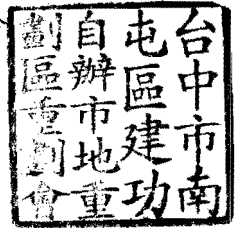 台中市南
屯區建功
自辦市地重
劃區重劃會